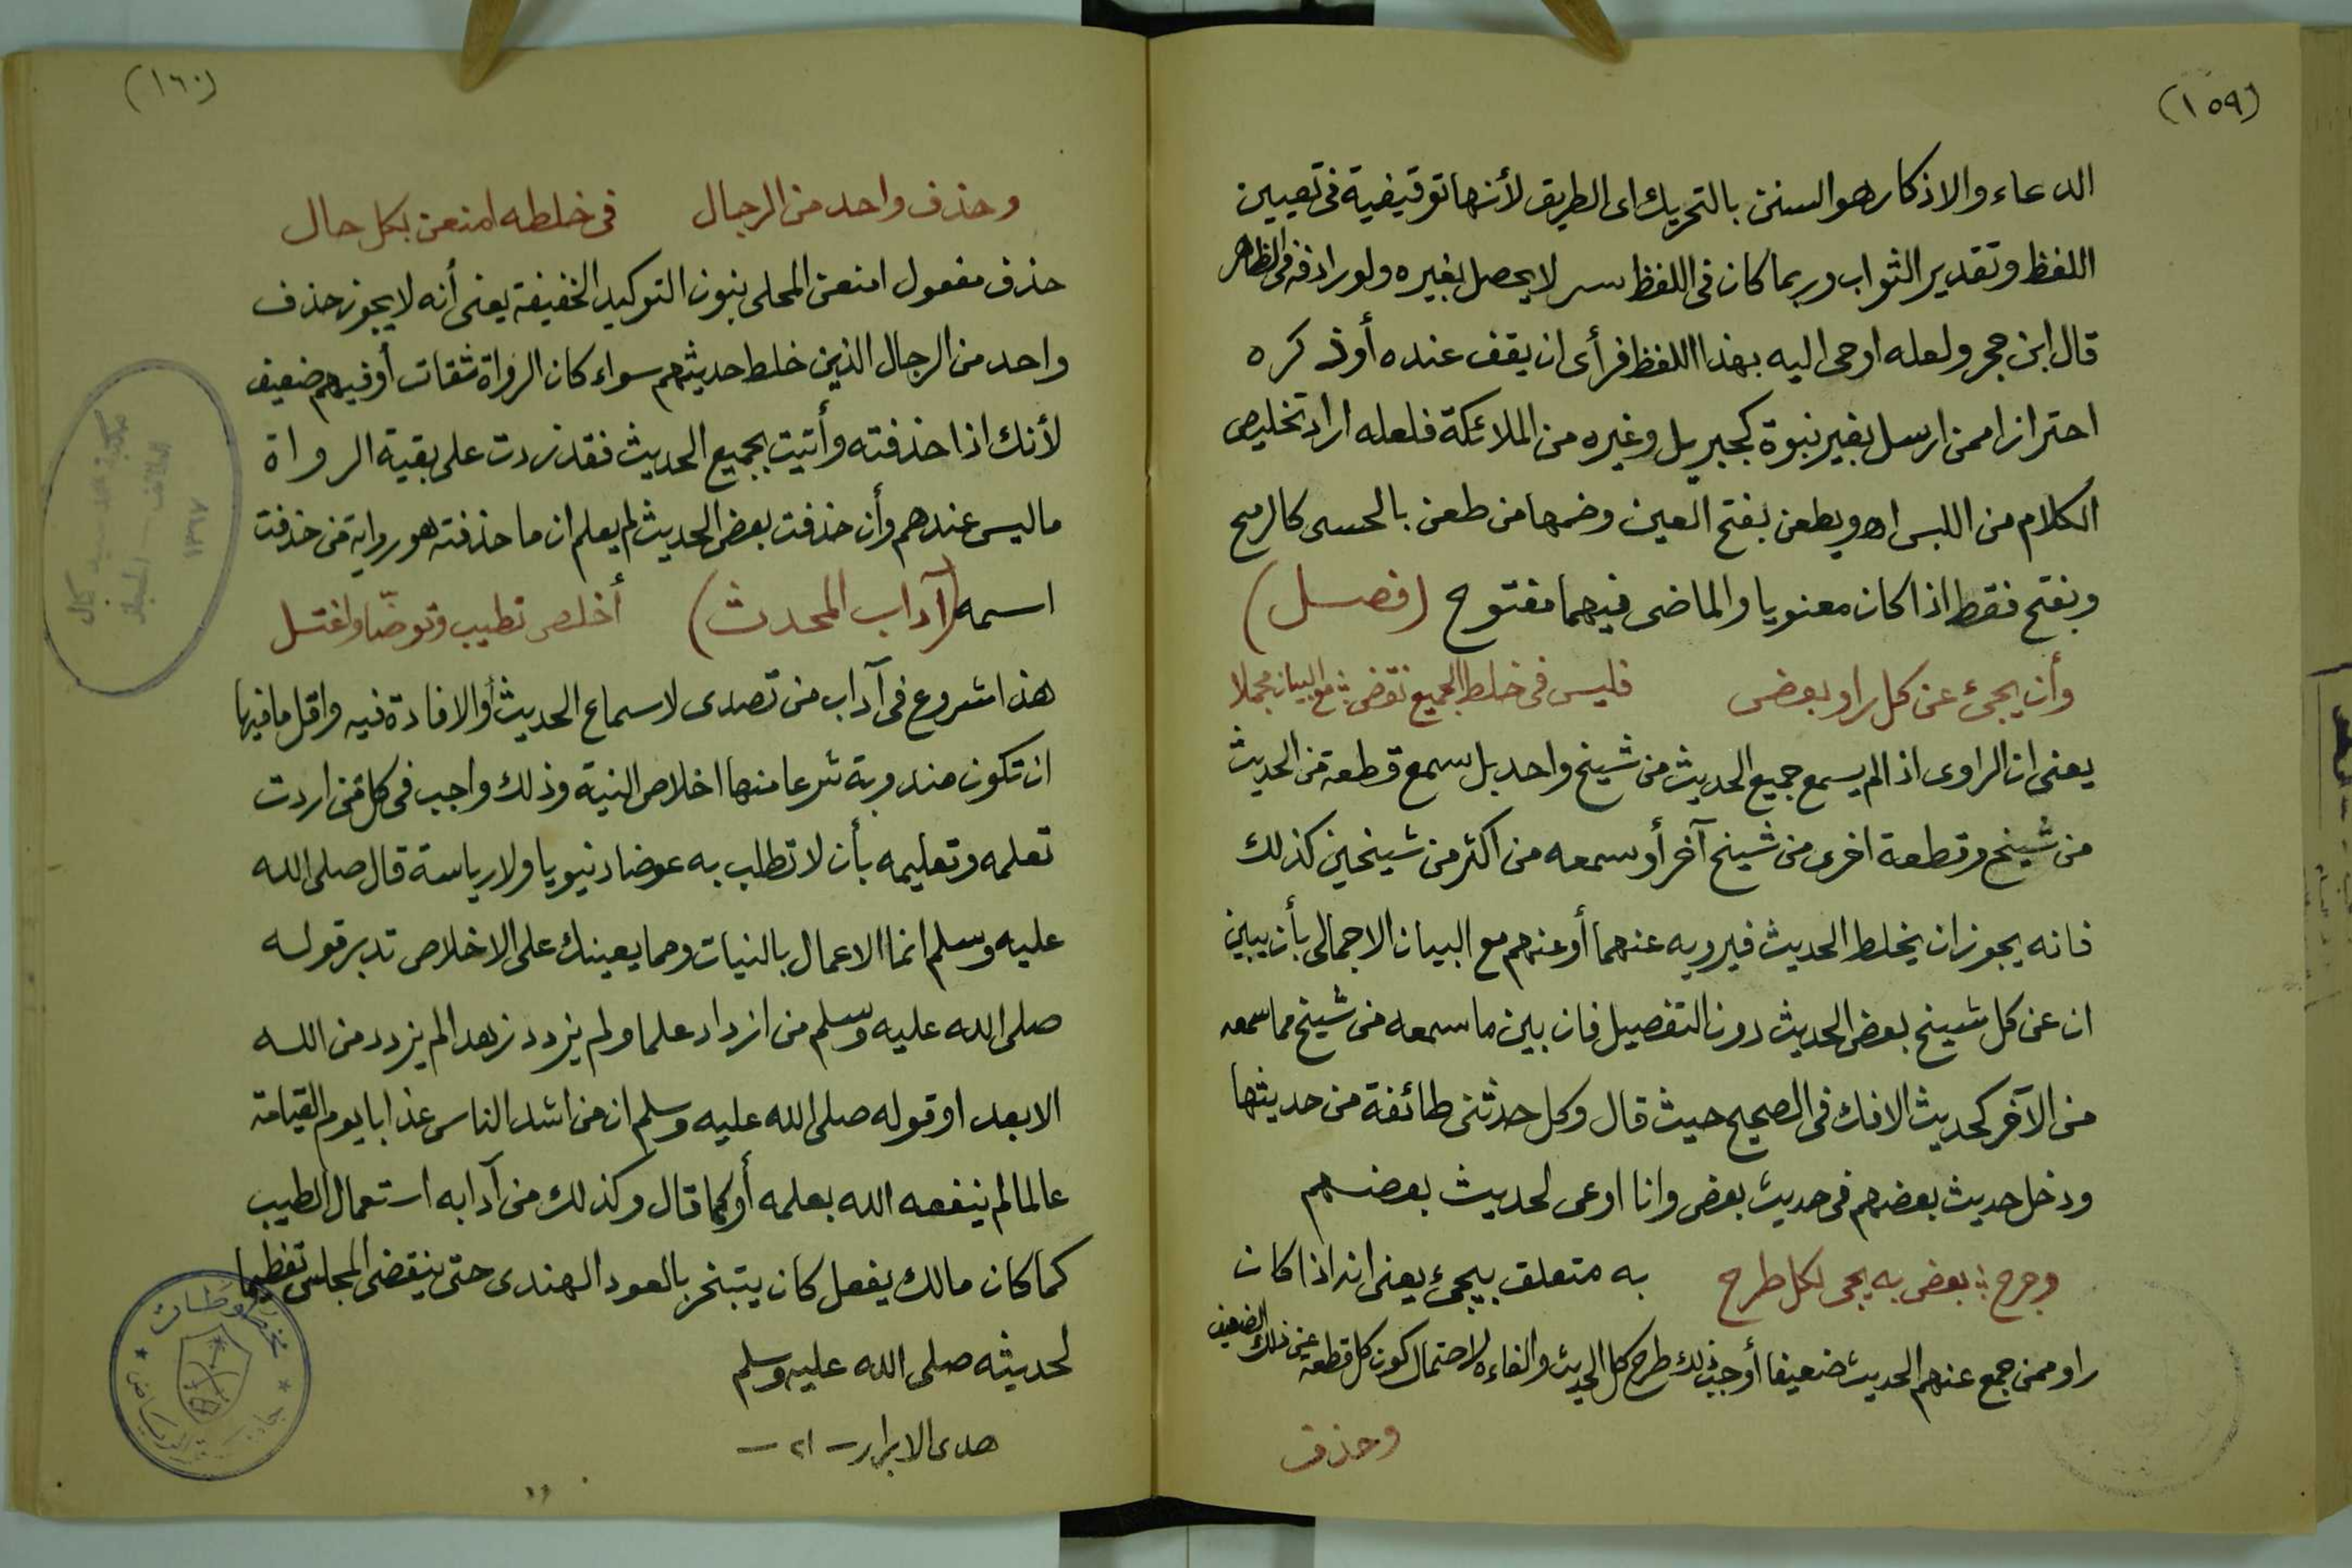 (١٥٩)
الدعاء والاذكار هو السنن بالتحريك اى الطريق لأنها توقيفية فى تعيين
اللفظ وتقدير الثواب وربما كان فى اللفظ سر لا يحصل بغيره ولو رادفه فى الظاهر
قال ابن حجر ولعله اوحى اليه بهذا اللفظ فرأى ان يقف عنده أو ذكره
احترازا ممن ارسل بغير نبوة كجبريل وغيره من الملائكة فلعله اراد تخليص
الكلام من اللبس اه ويطعن بفتح العين وضمها من طعن بالحسى كالرمح
وبفتح فقط اذا كان معنويا والماضى فيهما مفتوح (فصل)
وأن يجئ عن كل راو بعض فليس فى خلط الجميع نقض ؛ مع البيان مجملا
يعنى ان الراوى اذا لم يسمع جميع الحديث من شيخ واحد بل سمع قطعة من الحديث
من شيخ وقطعة اخرى من شيخ آخر أو سمعه من اكثر من شيخين كذلك
فانه يجوز ان يخلط الحديث فيرويه عنهما أو عنهم مع البيان الاجمالى بأن يبين
ان عن كل شيخ بعض الحديث دون التفصيل فان بين ما سمعه من شيخ مما سمعه
من الآخر كحديث الافك فى الصحيح حيث قال وكل حدثنى طائفة من حديثها
ودخل حديث بعضهم فى حديث بعض وانا اوعى لحديث بعضهم
وجرح ؛ بعض به يجى لكل طرح به متعلق بيجئ يعنى انه اذا كان
راو ممن جمع عنهم الحديث ضعيفا أوجب ذلك طرح كل الحديث والغاءه لاحتمال كون كل قطعة عن ذلك الضعيف
وحذف
(١٦٠)
وحذف واحد من الرجال فى خلطه امنعن بكل حال
حذف مفعول امنعن المحلى بنون التوكيد الخفيفة يعنى أنه لا يجوز حذف
واحد من الرجال الذين خلط حديثهم سواء كان الرواة ثقات أو فيهم ضعيف
لأنك اذا حذفته وأتيت بجميع الحديث فقد زدت على بقية الرواة
ما ليس عندهم وأن حذفت بعض الحديث لم يعلم ان ما حذفته هو رواية من حذفت
اسمه (آداب المحدث) أخلص تطيب وتوضّا واغتسل
هذا شروع فى آداب من تصدى لاسماع الحديث أو الافادة فيه واقل ما فيها
ان تكون مندوبة شرعا منها اخلاص النية وذلك واجب فى كل من اردت
تعلمه وتعليمه بأن لا تطلب به عوضا دنيويا ولا رياسة قال صلى الله
عليه وسلم انما الاعمال بالنيات ومما يعينك على الاخلاص تدبر قوله
صلى الله عليه وسلم من ازداد علما ولم يزدد زهدا لم يزدد من الله
الا بعدا وقوله صلى الله عليه وسلم ان من اشد الناس عذابا يوم القيامة
عالما لم ينفعه الله بعلمه أو كما قال وكذلك من آدابه استعمال الطيب
كما كان مالك يفعل كان يتبخر بالعود الهندى حتى ينقضى المجلس تعظيما
لحديثه صلى الله عليه وسلم
هدى الابرار - ٢١ -
مخطوطات